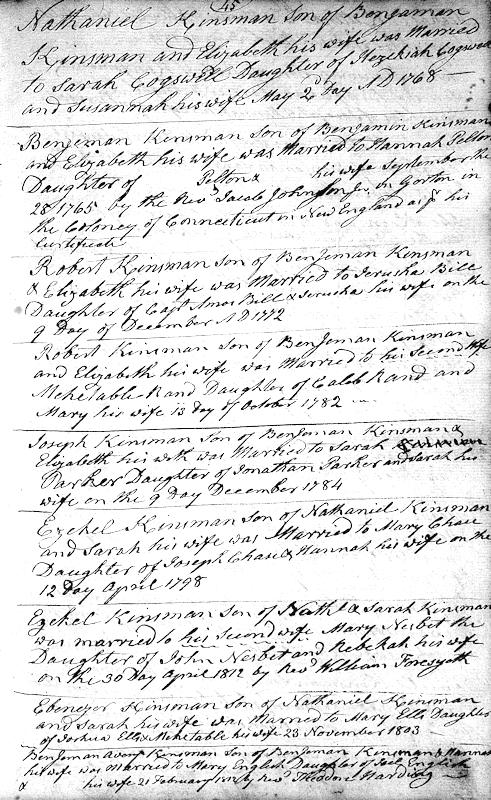 45
Nathaniel Kinsman Son of Benjaman
Kinsman and Elizabeth his wife was Married
to Sarah Cogswell Daughter of Hezekiah Cogswell
and Susannah his wife May 2d Day AD 1768
Benjeman Kinsman Son of Benjamin Kinsman
and Elizabeth his wife was Married to Hannah Pelton
Daughter of Pelton & his wife September the
28 1765 by the Revd Jacob Johnson Jr. in Groton in
the Coloney of Connecticut in New England as pr his
Curtificate
Robert Kinsman Son of Benjeman Kinsman
& Elizabeth his wife was Married to Jerusha Bill
Daughter of Capt Amos Bill & Jerusha his wife on the
9 Day of December AD 1772
Robert Kinsman Son of Benjeman Kinsman
and Elizabeth his wife was Married to his Second Wife
Mehetable Rand Daughter of Caleb Rand and
Mary his wife 13 Day of October 1782
Joseph Kinsman Son of Benjeman Kinsman &
Elizabeth his wife was Married to Sarah
Parker Daughter of Jonathan Parker and Sarah his
wife on the 9 Day December 1784
Ezekel Kinsman Son of Nathaniel Kinsman
and Sarah his wife was Married to Mary Chase
Daughter of Joseph Chase & Hannah his wife on the
12 Day April 1798
Ezekel Kinsman Son of Nathl & Sarah Kinsman
was married to his second wife Mary Nesbet the
Daughter of John Nesbet and Rebekah his wife
on the 30 Day April 1812 by Revd William Forsyth
Ebenezer Kinsman Son of Nathaniel Kinsman
and Sarah his wife was Married to Mary Ells Daughter
of Joshua Ells & Mehetable his wife 23 November 1803
Benjeman Avory Kinsman Son of Benjeman Kinsman & Hannah
his wife was Married to Mary English Daughter of Joel English
& his wife 21 February by Revd Theodore Harding